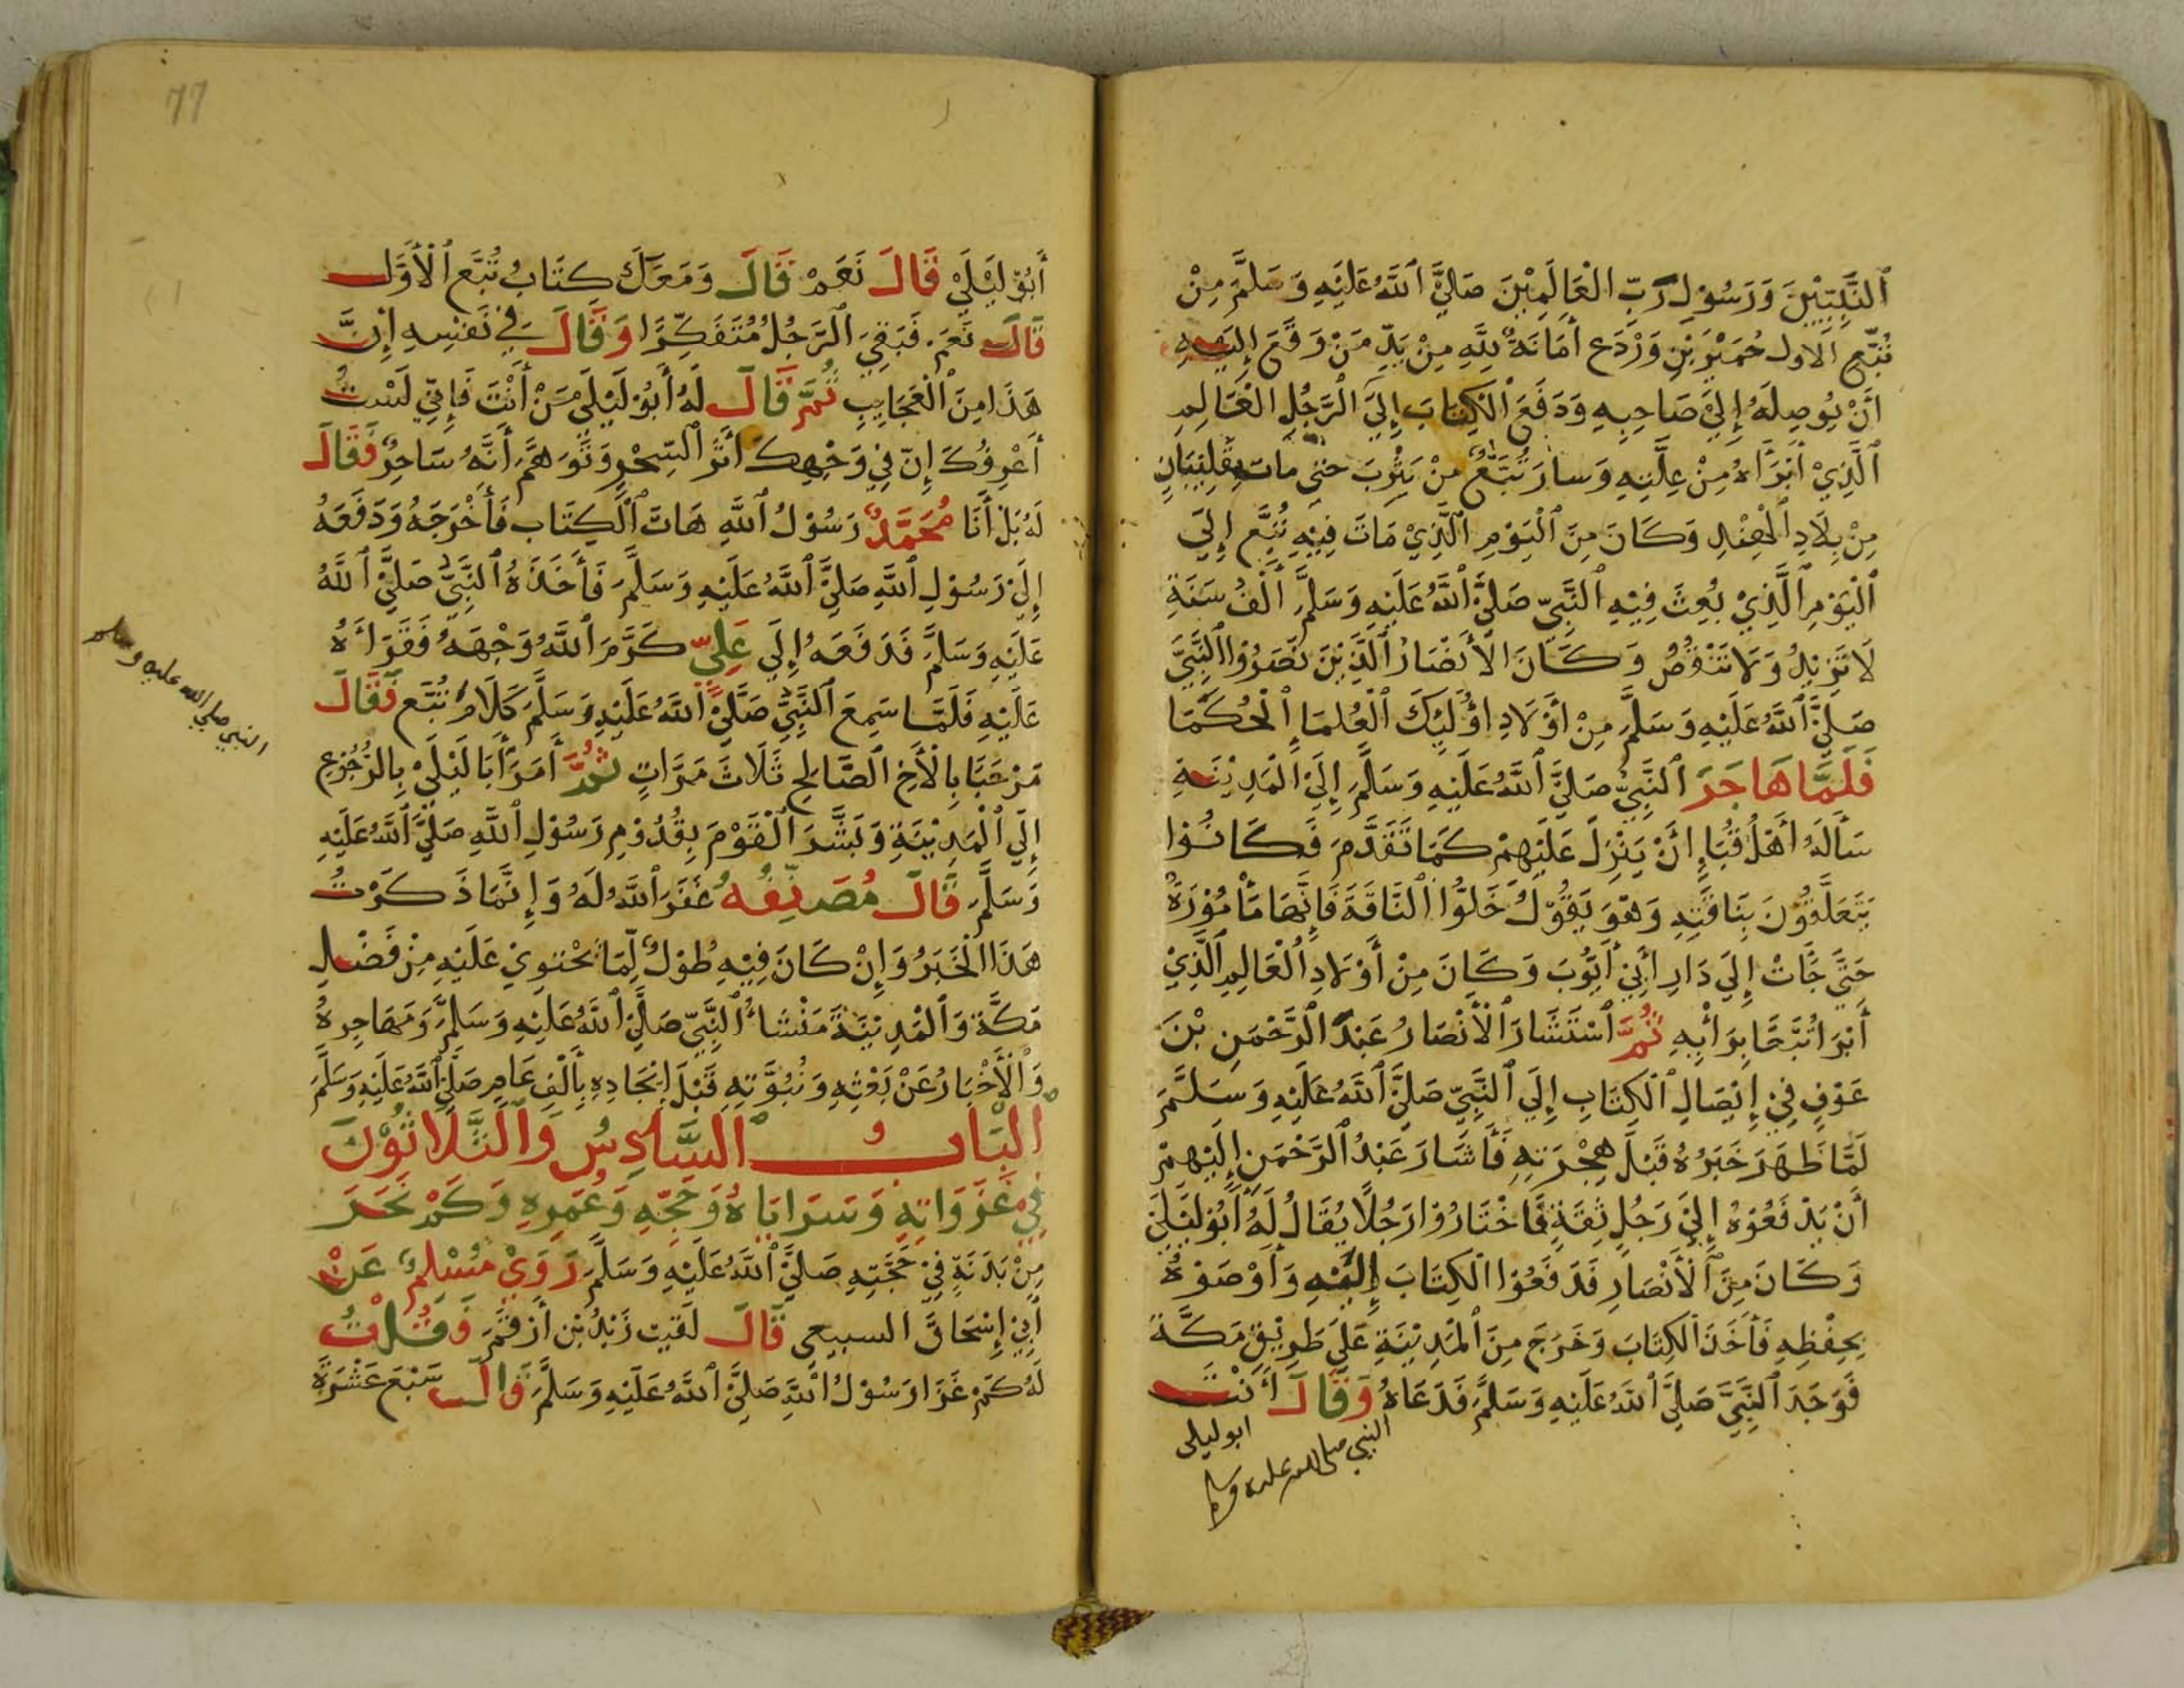 ٱلنَّبِيِّيْنَ وَرَسُوْلِ رَبِّ الْعَالَمِيْنَ صَلَّيَ ٱللَّهُ عَلَيْهِ وَسَلَّمَ مِنْ
تُبَّعِ الاول حُمَيْرِ بْنِ وَرْدَعِ أَمَانَةُ لِلَّهِ مِنْ يَدِّ مَنْ وَقَعَ إِلَيْهِ
أَنْ يُوصِلَهُ إِلَيَ صَاحِبِهِ وَدَفَعَ ٱلْكِتَابَ إِلَيَ ٱلرَّجُلِ الْعَالِمِ
ٱلَّذِيْ أَبْرَأَهُ مِنْ عِلَّتِهِ وَسارَ تُبَّعُ مِنْ يَثْرِبَ حتي مات بِقَلِيْبَانِ
مِنْ بِلَادِ ٱلْهِنْدِ وَكَانَ مِنَ ٱلْيَوْمِ ٱلَّذِيْ مَاتَ فِيْهِ تُبَّعِ إِلَيَ
ٱلْيَوْمِ ٱلَّذِيْ بُعِثَ فِيْهِ ٱلنَّبِيِّ صَلَّيَ ٱللَّهُ عَلَيْهِ وَسَلَّمَ أَلْفُ سَنَةٍ
لَا تَزِيْدُ وَلَا تَنْقُصُ وَكَانَ الْأَنْصَارُ ٱلَّذِيْنَ نَصَرُوْا ٱلنَّبِيَّ
صَلَّيَ ٱللَّهُ عَلَيْهِ وَسَلَّمَ مِنْ أَوْلَادِ أُوْلَيِكَ ٱلْعُلَمَاءِ ٱلْحُكَمَا
فَلَمَّا هَاجَرَ ٱلنَّبِيُّ صَلَّيَ ٱللَّهُ عَلَيْهِ وَسَلَّمَ إِلَيَ ٱلْمَدِيْنَةِ
سَأَلَهُ أَهْلُ قُبَاءِ أَنْ يَنْزِلَ عَلَيْهِمْ كَمَا تَقَدَّمَ فَكَانُوْا
يَتَعَلَّقُوْنَ بِنَاقَتِهِ وَهْوَ يَقُوْلُ خَلُّوا ٱلنَّاقَةَ فَإِنَّهَا مَأْمُوْرَةُ
حَتَّي جَآتْ إِلَيَ دَارِ أَبِيْ أَيُّوْبَ وَكَانَ مِنْ أَوْلَادِ ٱلْعَالِمِ ٱلَّذِيْ
أَبْرَا تُبَّعًا بِرَأْيِهِ ثُمَّ ٱسْتَشَارَ ٱلْأَنْصَارُ عَبْدَ ٱلرَّحْمَنِ بْنَ
عَوْفٍ فِيْ إِيْصَالِ ٱلْكِتَابِ إِلَي ٱلنَّبِيِّ صَلَّيَ ٱللَّهُ عَلَيْهِ وَسَلَّمَ
لَمَّا ظَهَرَ خَبَرُهُ قَبْلَ هِجْرَتِهِ فَأَشَارَ عَبْدُ ٱلرَّحْمَنِ إِلَيْهِمْ
أَنْ يَدْفَعُوْهُ إِلَيَ رَجُلٍ ثِقَةٍ فَاخْتَارُوْا رَجُلًا يُقَالُ لَهُ أَبُوْ لَيْلَيَ
وَكَانَ مِنَ ٱلْأَنْصَارِ فَدَفَعُوْا ٱلْكِتَابَ إِلَيْهِ وَأَوْصَوْهُ
بِحِفْظِهِ فَأَخَذَ ٱلْكِتَابَ وَخَرَجَ مِنَ ٱلْمَدِيْنَةِ عَلَيَ طَرِيْقِ مَكَّةَ
فَوَجَدَ ٱلنَّبِيَّ صَلَّيَ ٱللَّهُ عَلَيْهِ وَسَلَّمَ فَدَعَاهُ وَقَالَ أَنْتَ
ابو ليلى
النبي صلى الله عليه وسلم
77
أَبُوْ لَيْلَيْ قَالَ نَعَمْ قَالَ وَمَعَكَ كِتَابُ تُبَّعِ ٱلْأَوَّلِ
قَالَ نَعَمْ فَبَقِيَ ٱلرَّجُلُ مُتَفَكِّرًا وَقَالَ فِي نَفْسِهِ إِنَّ
هَذَا مِنَ ٱلْعَجَايِبِ ثُمَّ قَالَ لَهُ أَبُوْ لَيْلَيَ مَنْ أَنْتَ فَإِنِّي لَسْتُ
أَعْرِفُكَ إِنَّ فِيْ وَجْهِكَ أَثَرَ ٱلسِّحْرِ وَتَوَهَّمَ أَنَّهُ سَاحِرٌ فَقَالَ
لَهُ بَلْ أَنَا مُحَمَّدٌ رَسُوْلُ ٱللَّهِ هَاتَ ٱلْكِتَابَ فَأَخْرَجَهُ وَدَفَعَهُ
إِلَيَ رَسُوْلِ ٱللَّهِ صَلَّيَ ٱللَّهُ عَلَيْهِ وَسَلَّمَ فَأَخَذَهُ ٱلنَّبِيُّ صَلَّيَ ٱللَّهُ
عَلَيْهِ وَسَلَّمَ فَدَفَعَهُ إِلَيَ عَلِيِّ كَرَّمَ ٱللَّهُ وَجْهَهُ فَقَرَأَهُ
عَلَيْهِ فَلَمَّا سَمِعَ ٱلنَّبِيُّ صَلَّيَ ٱللَّهُ عَلَيْهِ وَسَلَّمَ كَلَامَ تُبَّعِ فَقَالَ
مَرْحَبًا بِالْأَخِ ٱلصَّالِحِ ثَلَاثَ مَرَّاتٍ ثُمَّ أَمَرَ أَبَا لَيْلَيْ بِالرُّجُوْعِ
إِلَي ٱلْمَدِيْنَةِ وَبَشَّرَ ٱلْقَوْمَ بِقُدُوْمِ رَسُوْلِ ٱللَّهِ صَلَّيَ ٱللَّهُ عَلَيْهِ
وَسَلَّمَ قَالَ مُصَنِّفُهُ غَفَرَ ٱللَّهُ لَهُ وَإِنَّمَا ذَكَرْتُ
هَذَا ٱلْخَبَرُ وَإِنْ كَانَ فِيْهِ طُوْلٌ لِّمَا يَحْتَوِيْ عَلَيْهِ مِنْ فَضْلِ
مَكَّةَ وَٱلْمَدِيْنَةَ مَنْشَأُ ٱلنَّبِيِّ صَلَّيَ ٱللَّهُ عَلَيْهِ وَسَلَّمَ وَمَهَاجِرِهُ
وَٱلْأَخْبَارُ عَنْ بَعْثِهِ وَنُبُوَّتِهِ قَبْلَ إِيْجَادِهِ بِأَلْفِ عَامٍ صَلَّي ٱللَّهُ عَلَيْهِ وَسَلَّمَ
ٱلْبَابُ ٱلسَّادِسُ وَٱلثَّلَاثُوْنَ
فِيْ غَزَوَاتِهِ وَسَرَايَاهُ وَحَجِّهِ وَعُمَرِهِ وَكَمْ نَحَرَ
مِنْ بَدَنَةٍ فِيْ حَجَّتِهِ صَلَّيَ ٱللَّهُ عَلَيْهِ وَسَلَّمَ رَوَيْ مُسْلِمٌ عَنْ
أَبِيْ إِسْحَاقَ السبيعى قَالَ لَقيت زَيْدُ بْنِ أَرْقَمَ فَقُلْتُ
لَهُ كَمْ غَزَا رَسُوْلُ ٱللَّهِ صَلَّيَ ٱللَّهُ عَلَيْهِ وَسَلَّمَ قَالَ سَبْعَ عَشْرَةَ
النبي صلي الله عليه وسلم